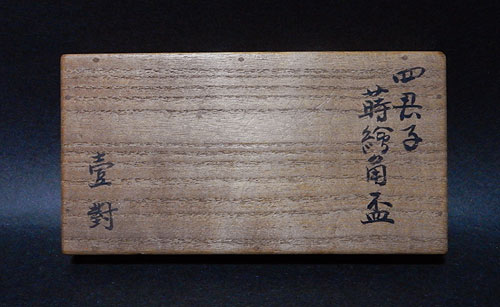 四君子
蒔繪角盃
壹對